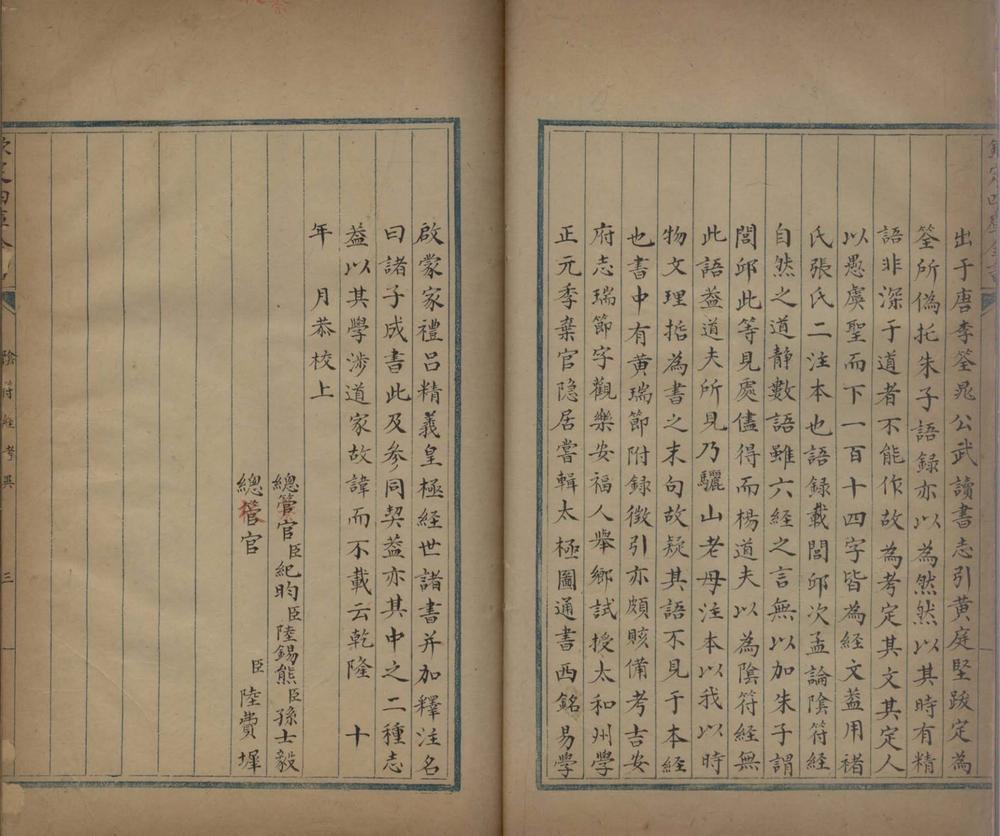 欽定四庫全書
出于唐李筌晁公武讀書志引黄庭堅跋定為
筌所偽托朱子語録亦以為然然以其時有精
語非深于道者不能作故為考定其文其定人
以愚虞聖而下一百十四字皆為經文葢用褚
氏張氏二注本也語録載閭邱次孟論隂符經
自然之道静數語雖六經之言無以加朱子謂
閭邱此等見處儘得而楊道夫以為隂符經無
此語葢道夫所見乃驪山老母注本以我以時
物文理悊為書之末句故疑其語不見于本經
也書中有黄瑞節附録徴引亦頗賅備考吉安
府志瑞節字觀樂安福人舉鄉試授太和州學
正元季棄官隐居嘗輯太極圖通書西銘易學
啟蒙家禮吕精義皇極經世諸書并加釋注名
曰諸子成書此及参同契葢亦其中之二種志
葢以其學渉道家故諱而不載云乾隆 十
年 月恭校上
總管官臣紀昀臣陸錫熊臣孫士毅
總管官 臣陸費墀
欽定四庫全書
隂符經考異
三